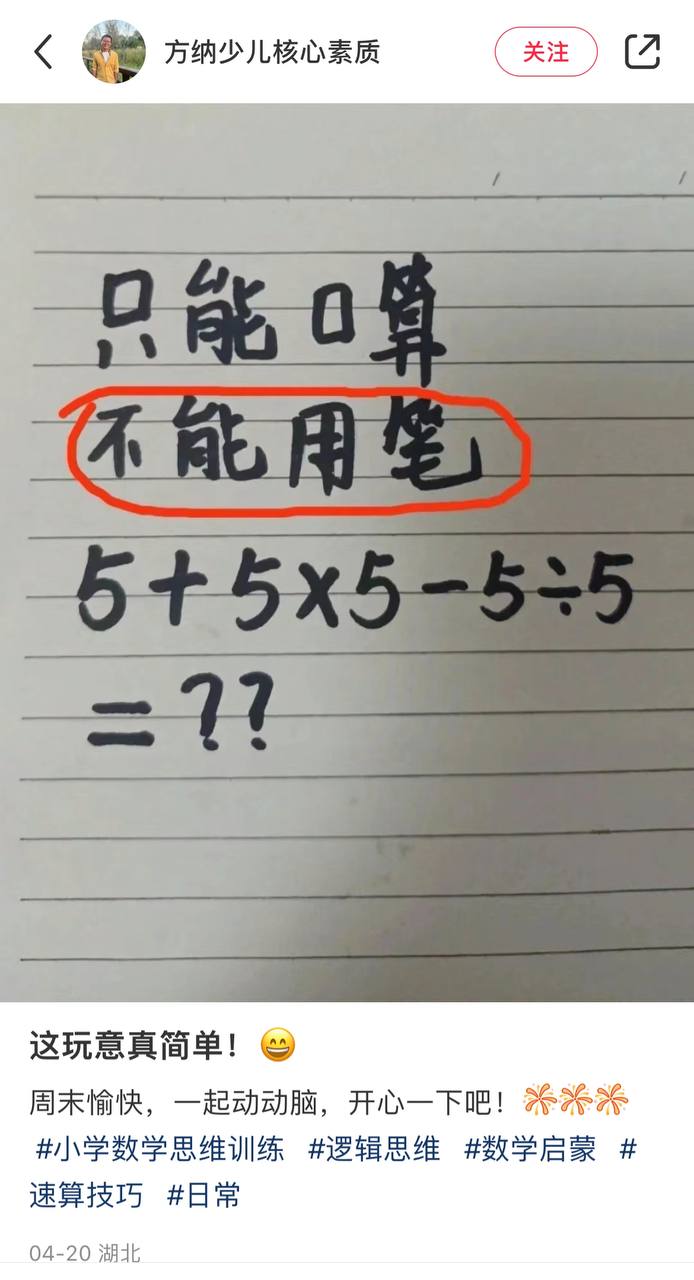 方纳少儿核心素质 关注
只能口算
不能用笔
5+5×5-5÷5
=??
这玩意真简单！😄
周末愉快，一起动动脑，开心一下吧！🎆🎆🎆
#小学数学思维训练 #逻辑思维 #数学启蒙 #
速算技巧 #日常
04-20 湖北